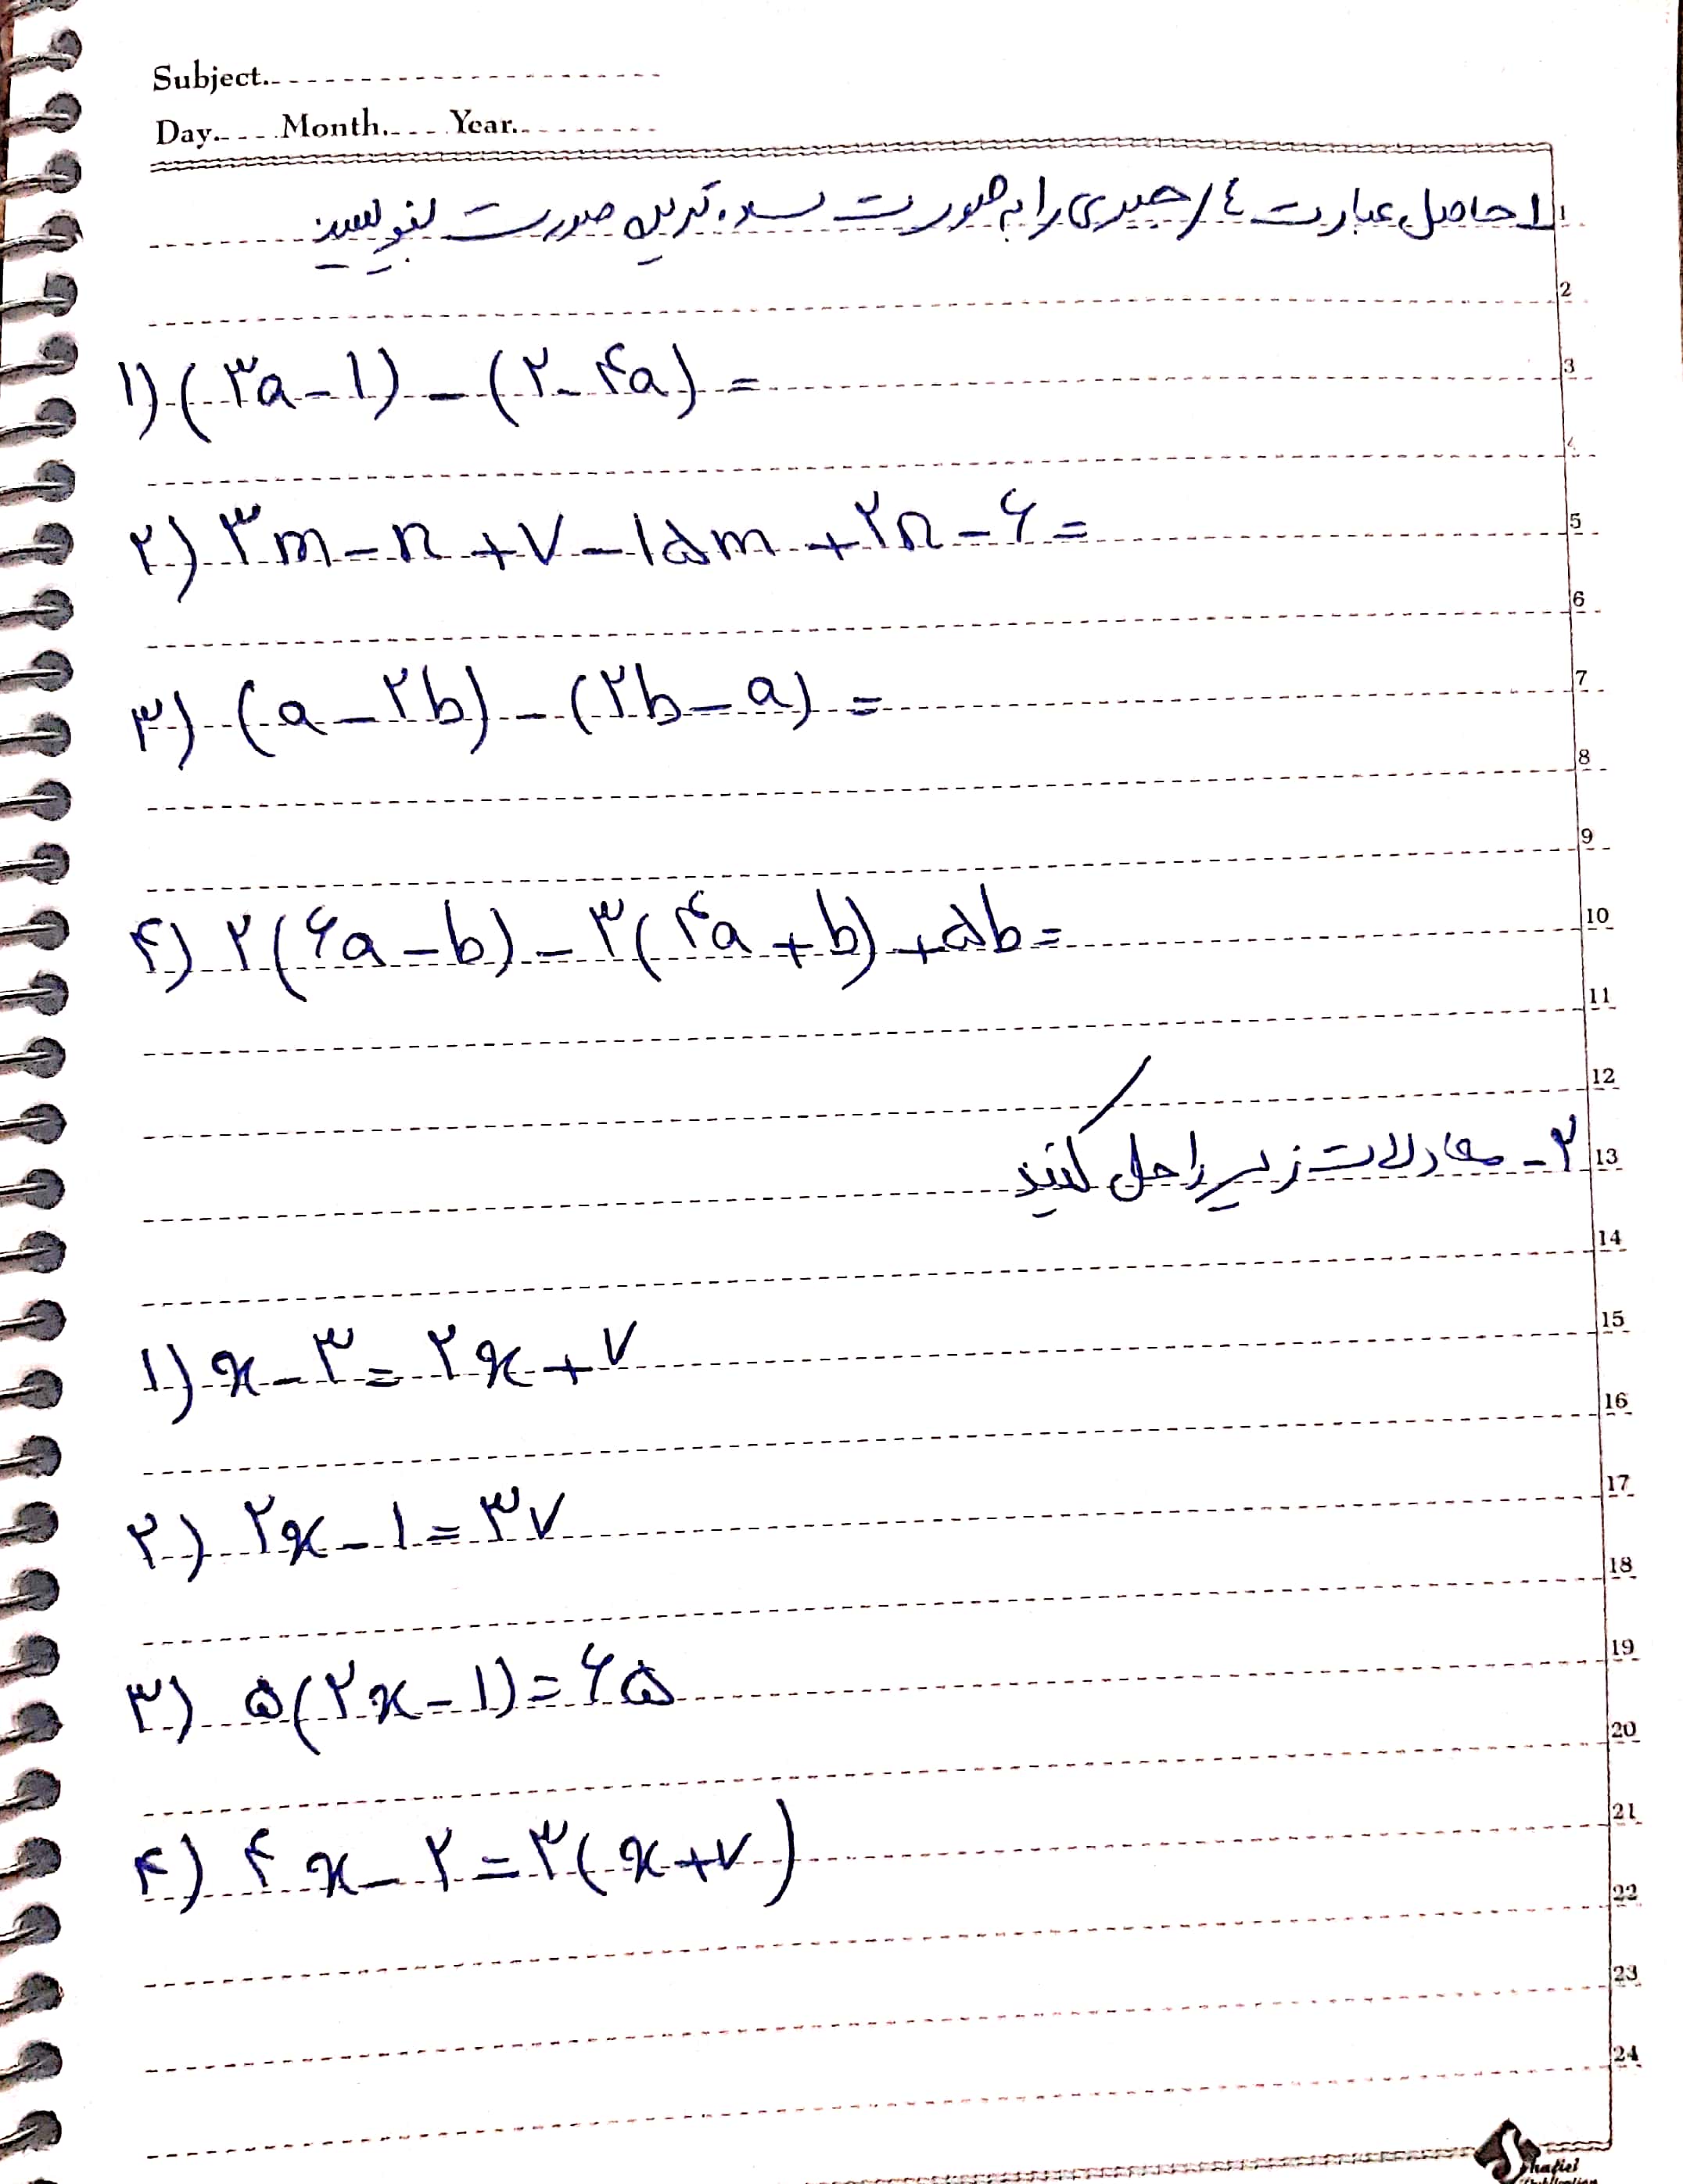 Subject.
Day. Month. Year.
1 حاصل عبارت های جبری را به صورت ساده ترین صورت بنویسید
۱) (۳a - ۱) - (۲ - ۴a) =
۲) ۳m - n + ۷ - ۱۵m + ۲n - ۶ =
۳) (a - ۲b) - (۲b - a) =
۴) ۲(۶a - b) - ۳(۴a + b) + ۵b =
۲- معادلات زیر را حل کنید
۱) x - ۳ = ۲x + ۷
۲) ۲x - ۱ = ۳۷
۳) ۵(۲x - ۱) = ۶۵
۴) ۴x - ۲ = ۳(x + ۷)
1
2
3
4
5
6
7
8
9
10
11
12
13
14
15
16
17
18
19
20
21
22
23
24
Shafiei
Publication